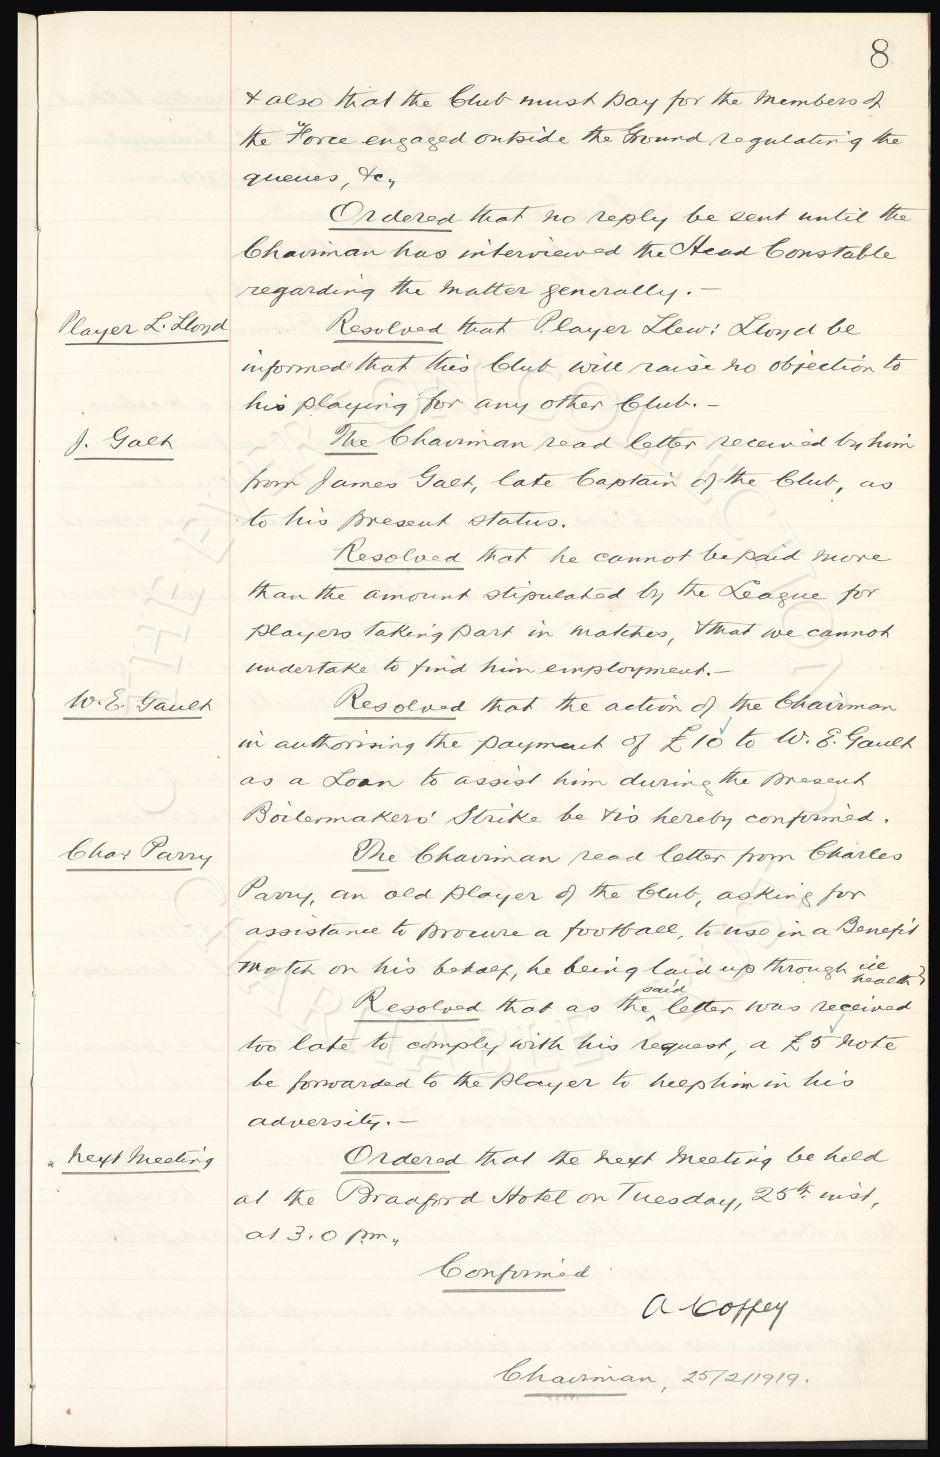 8
& also that the Club must pay for the Members of
the Force engaged outside the Ground regulating the
queues, &c,,
Ordered that no reply be sent until the
Chairman has interviewed the Head Constable
regarding the matter generally. —
Player L. Lloyd
Resolved that Player Llew: Lloyd be
informed that this Club will raise no objection to
his playing for any other Club. —
J. Galt
The Chairman read letter received by him
from James Galt, late Captain of the Club, as
to his present status.
Resolved that he cannot be paid more
than the amount stipulated by the League for
players taking part in matches, & that we cannot
undertake to find him employment. —
W. E. Gault
Resolved that the action of the Chairman
in authorising the payment of £10 to W. E. Gault
as a Loan to assist him during the present
Boilermakers' Strike be & is hereby confirmed.
Chas Parry
The Chairman read letter from Charles
Parry, an old player of the Club, asking for
assistance to procure a football, to use in a Benefit
Match on his behalf, he being laid up through ill health.
Resolved that as the said letter was received
too late to comply with his request, a £5 note
be forwarded to the player to help him in his
adversity. —
Next Meeting
Ordered that the next Meeting be held
at the Bradford Hotel on Tuesday, 25th inst,
at 3.0 pm,,
Confirmed
A Coffey
Chairman, 25/2/1919.